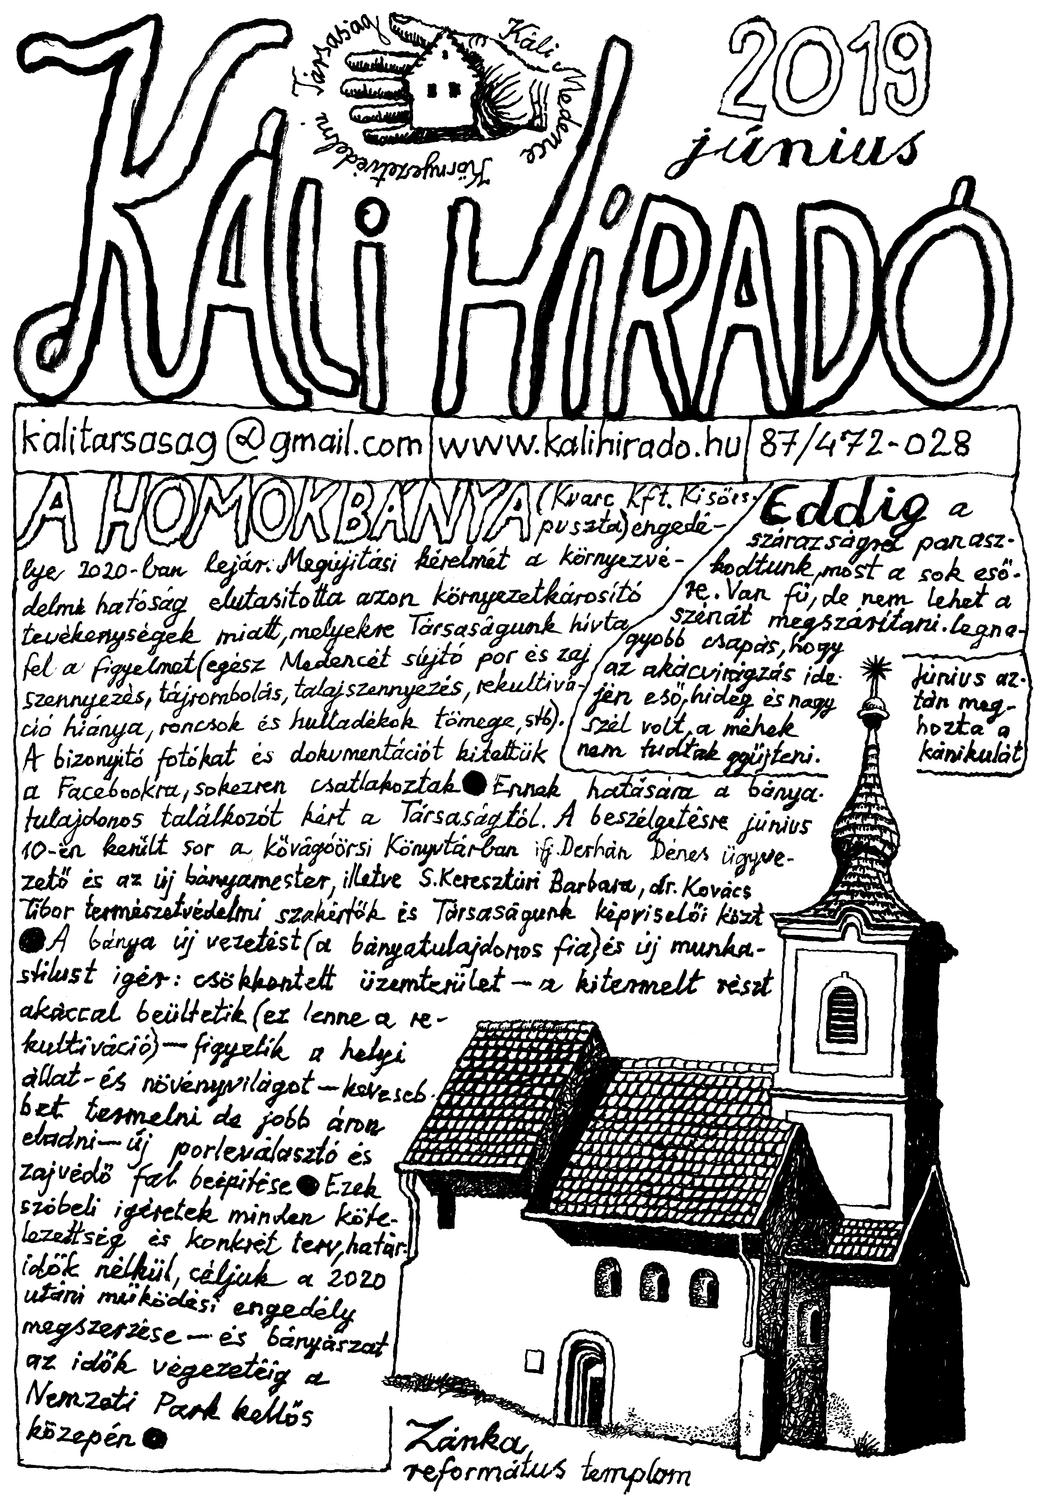 KÁLI HÍRADÓ
Káli Medence
Környezetvédelmi
Társaság
2019
június
kalitarsasag@gmail.com www.kalihirado.hu 87/472-028
A HOMOKBÁNYA (Kvarc Kft. Kisőrs-
puszta) engedé-
lye 2020-ban lejár. Megújítási kérelmét a környezvé-
delmi hatóság elutasította azon környezetkárosító
tevékenységek miatt, melyekre Társaságunk hívta
fel a figyelmet (egész Medencét sújtó por és zaj
szennyezés, tájrombolás, talajszennyezés, rekultivá-
ció hiánya, roncsok és hulladékok tömege, stb).
A bizonyító fotókat és dokumentációt kitettük
a Facebookra, sokezren csatlakoztak ● Ennek hatására a bánya-
tulajdonos találkozót kért a Társaságtól. A beszélgetésre június
10-én került sor a kővágóörsi Könyvtárban ifj. Derhán Dénes ügyve-
zető és az új bányamester, illetve S. Keresztúri Barbara, dr. Kovács
Tibor természetvédelmi szakértők és Társaságunk képviselői közt
● A bánya új vezetést (a bányatulajdonos fia) és új munka-
stílust ígér: csökkentett üzemterület — a kitermelt részt
akáccal beültetik (ez lenne a re-
kultiváció) — figyelik a helyi
állat- és növényvilágot — keveseb-
bet termelni de jobb áron
eladni — új porleválasztó és
zajvédő fal beépítése ● Ezek
szóbeli ígéretek minden köte-
lezettség és konkrét terv, határ-
idők nélkül, céljuk a 2020
utáni működési engedély
megszerzése — és bányászat
az idők végezetéig a
Nemzeti Park kellős
közepén ●
Eddig a
szárazságra panasz-
kodtunk, most a sok eső-
re. Van fű, de nem lehet a
szénát megszárítani. Legna-
gyobb csapás, hogy
az akácvirágzás ide-
jén eső, hideg és nagy
szél volt, a méhek
nem tudtak gyűjteni.
Június az-
tán meg-
hozta a
kánikulát
Zánka,
református templom